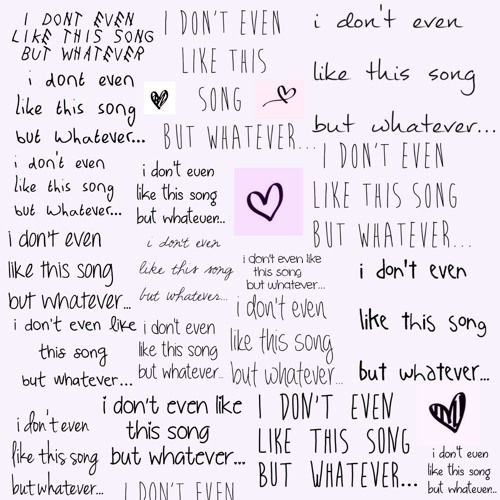 I DONT EVEN
LIKE THIS SONG
BUT WHATEVER
I DON'T EVEN
LIKE THIS
SONG
BUT WHATEVER...
i don't even
like this song
but whatever...
i dont even
like this song
but whatever...
i don't even
like this song
but whatever...
i don't even
like this song
but whatever...
I DON'T EVEN
LIKE THIS SONG
BUT WHATEVER...
i don't even
like this song
but whatever...
i don't even
like this song
but whatever...
i don't even like
this song
but whatever...
i don't even
like this song
but whatever...
i don't even like
this song
but whatever...
i don't even
like this song
but whatever...
i don't even
like this song
but whatever...
i don't even
like this song
but whatever...
i don't even like
this song
but whatever...
I DON'T EVEN
LIKE THIS SONG
BUT WHATEVER...
i don't even
like this song
but whatever...
I DON'T EVEN